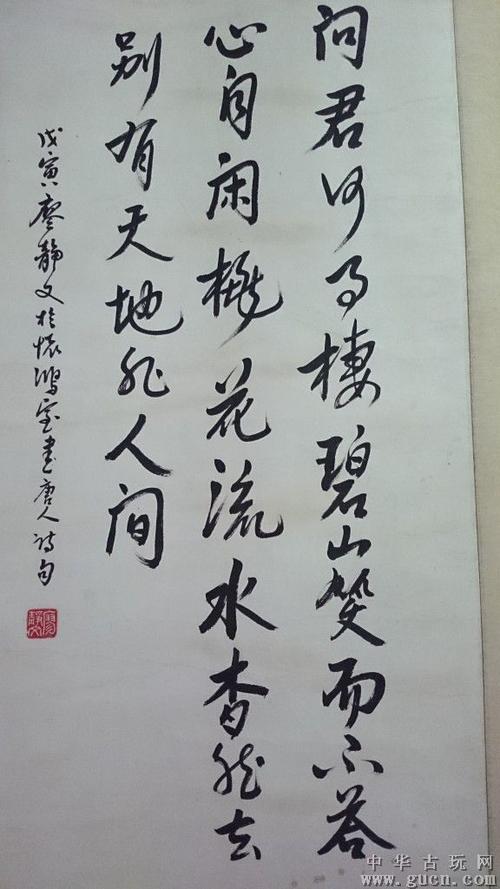 问君何事棲碧山笑而不答
心自闲桃花流水杳然去
别有天地非人间
戊寅廖静文於怀鸿室书唐人诗句
廖静文
中华古玩网
www.gucn.com